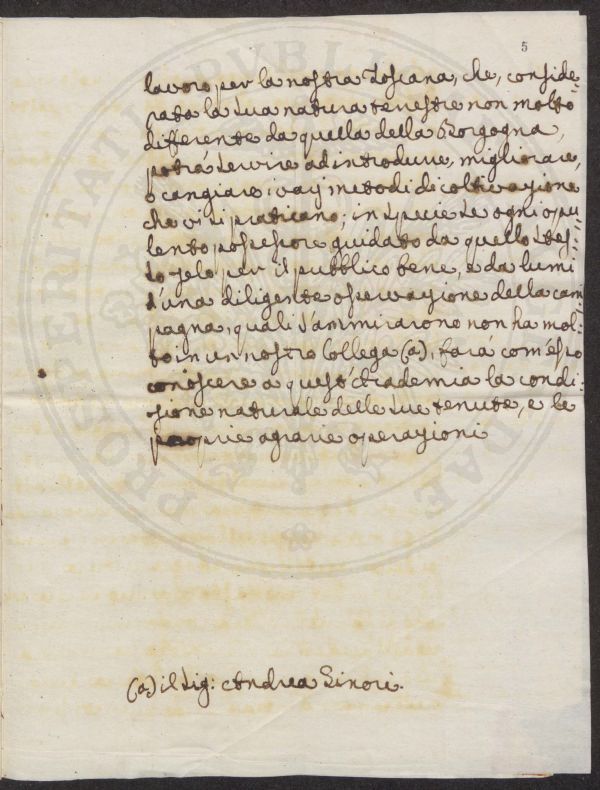 5
lavoro per la nostra Toscana, che, conside-
rata la sua natura terestre non molto
differente da quella della Borgogna,
potrà servire ad introdurre, migliorare,
o cangiare i varj metodi di coltivazione
che vi si praticano; in specie se ogni opu-
lento possessore guidato da quello stes-
so zelo per il pubblico bene, e da lumi
d'una diligente osservazione della cam-
pagna, quali s'ammirarono non ha mol-
to in un nostro Collega (a), farà com'esso
conoscere a quest'Accademia la condi-
zione naturale delle sue tenute, e le
proprie agrarie operazioni
(a) il Sig: Andrea Ginori.
PROSPERITATI PUBLICAE